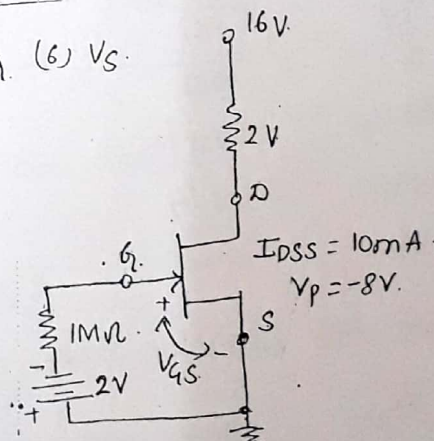 (6) VS.
16V.
2V
D
G.
IDSS = 10mA
VP = -8V.
+
S
1MΩ.
VGS.
-
-
2V
+